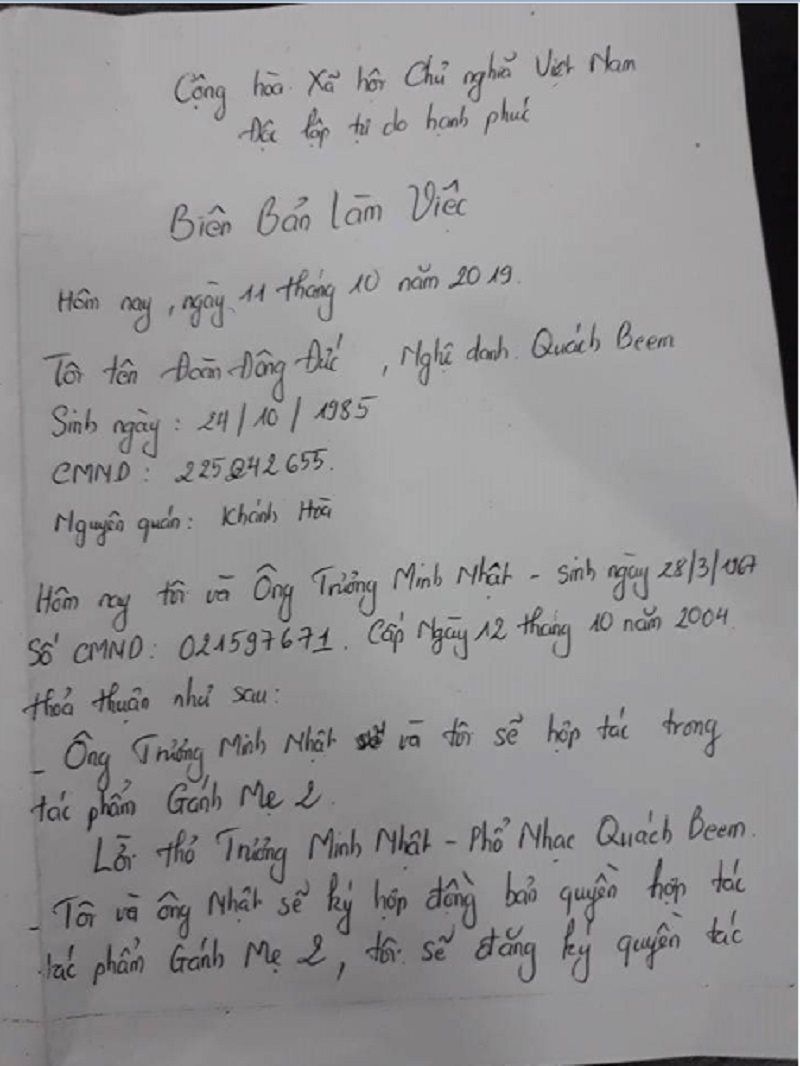 Cộng hòa Xã hội Chủ nghĩa Việt Nam
Độc lập tự do hạnh phúc
Biên Bản Làm Việc
Hôm nay, ngày 11 tháng 10 năm 2019.
Tôi tên Đoàn Đông Đức, Nghệ danh. Quách Beem
Sinh ngày: 24/10/1985
CMND: 225242655.
Nguyên quán: Khánh Hòa
Hôm nay tôi và Ông Trương Minh Nhật - sinh ngày 28/3/1967
Số CMND: 021597671. Cấp Ngày 12 tháng 10 năm 2004
thỏa thuận như sau:
- Ông Trương Minh Nhật và tôi sẽ hợp tác trong
tác phẩm Gánh Mẹ 2.
Lời thơ Trương Minh Nhật - Phổ Nhạc Quách Beem.
- Tôi và ông Nhật sẽ ký hợp đồng bản quyền hợp tác
tác phẩm Gánh Mẹ 2, tôi sẽ đăng ký quyền tác